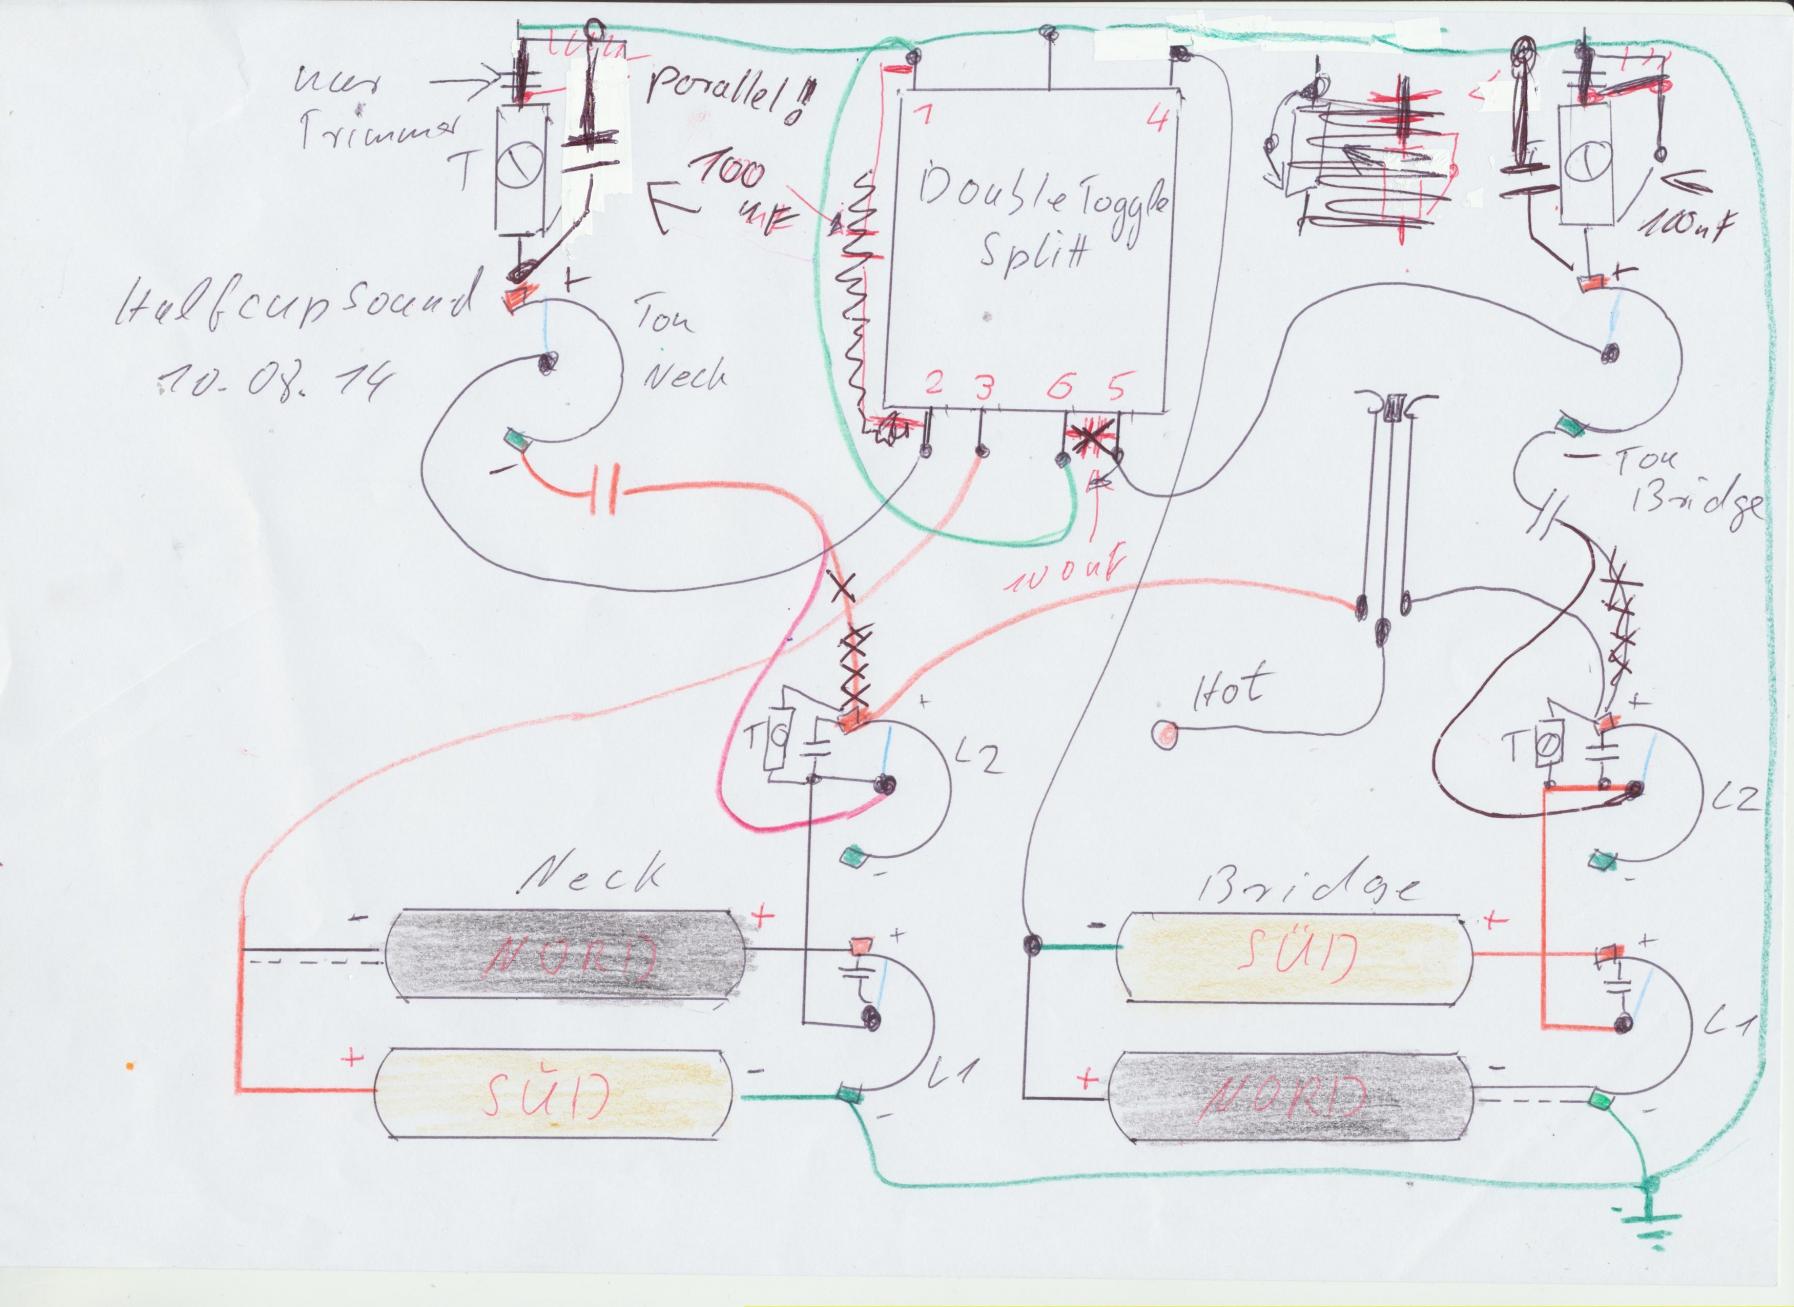 nur
Trimmer
T
parallel!!
100
nF
1
4
Double Toggle
Splitt
100nF
Halfcupsound
10.08.14
+
Ton
Neck
-
2
3
6
5
100nF
+
-
Ton
Bridge
Hot
T
+
L2
-
T
+
L2
-
Neck
-
NORD
+
+
L1
-
+
SÜD
-
Bridge
-
SÜD
+
+
L1
-
+
NORD
-